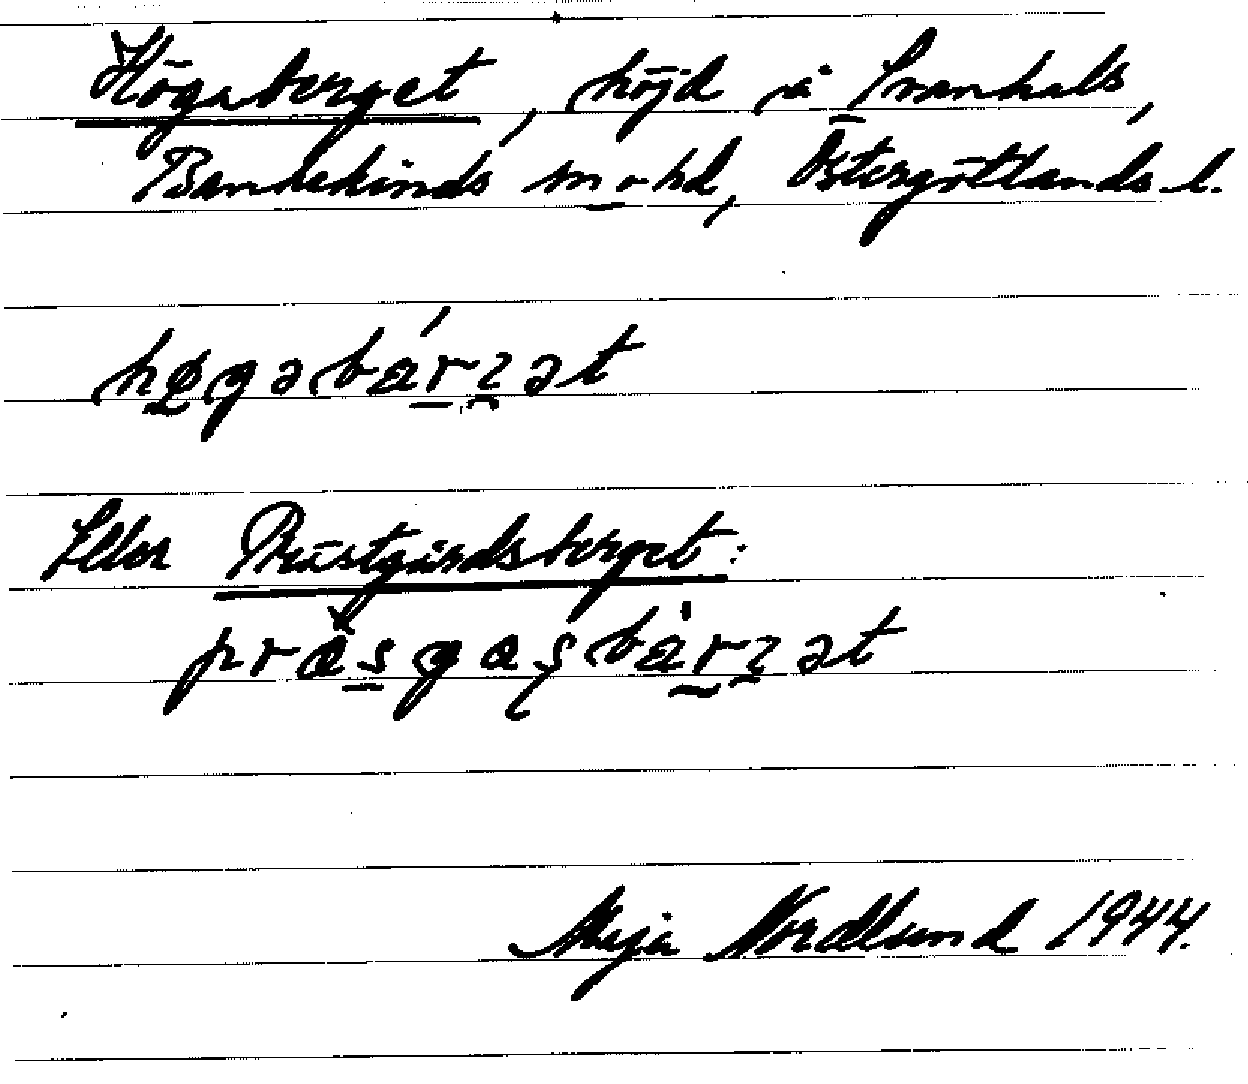 Högaberget, höjd i Svanhals,
Bankekinds sn o hd, Östergötlands l.
høgəbá̱rzət
Eller Prästgårdsberget:
präsgasbärzət
Maja Nordlund 1944.